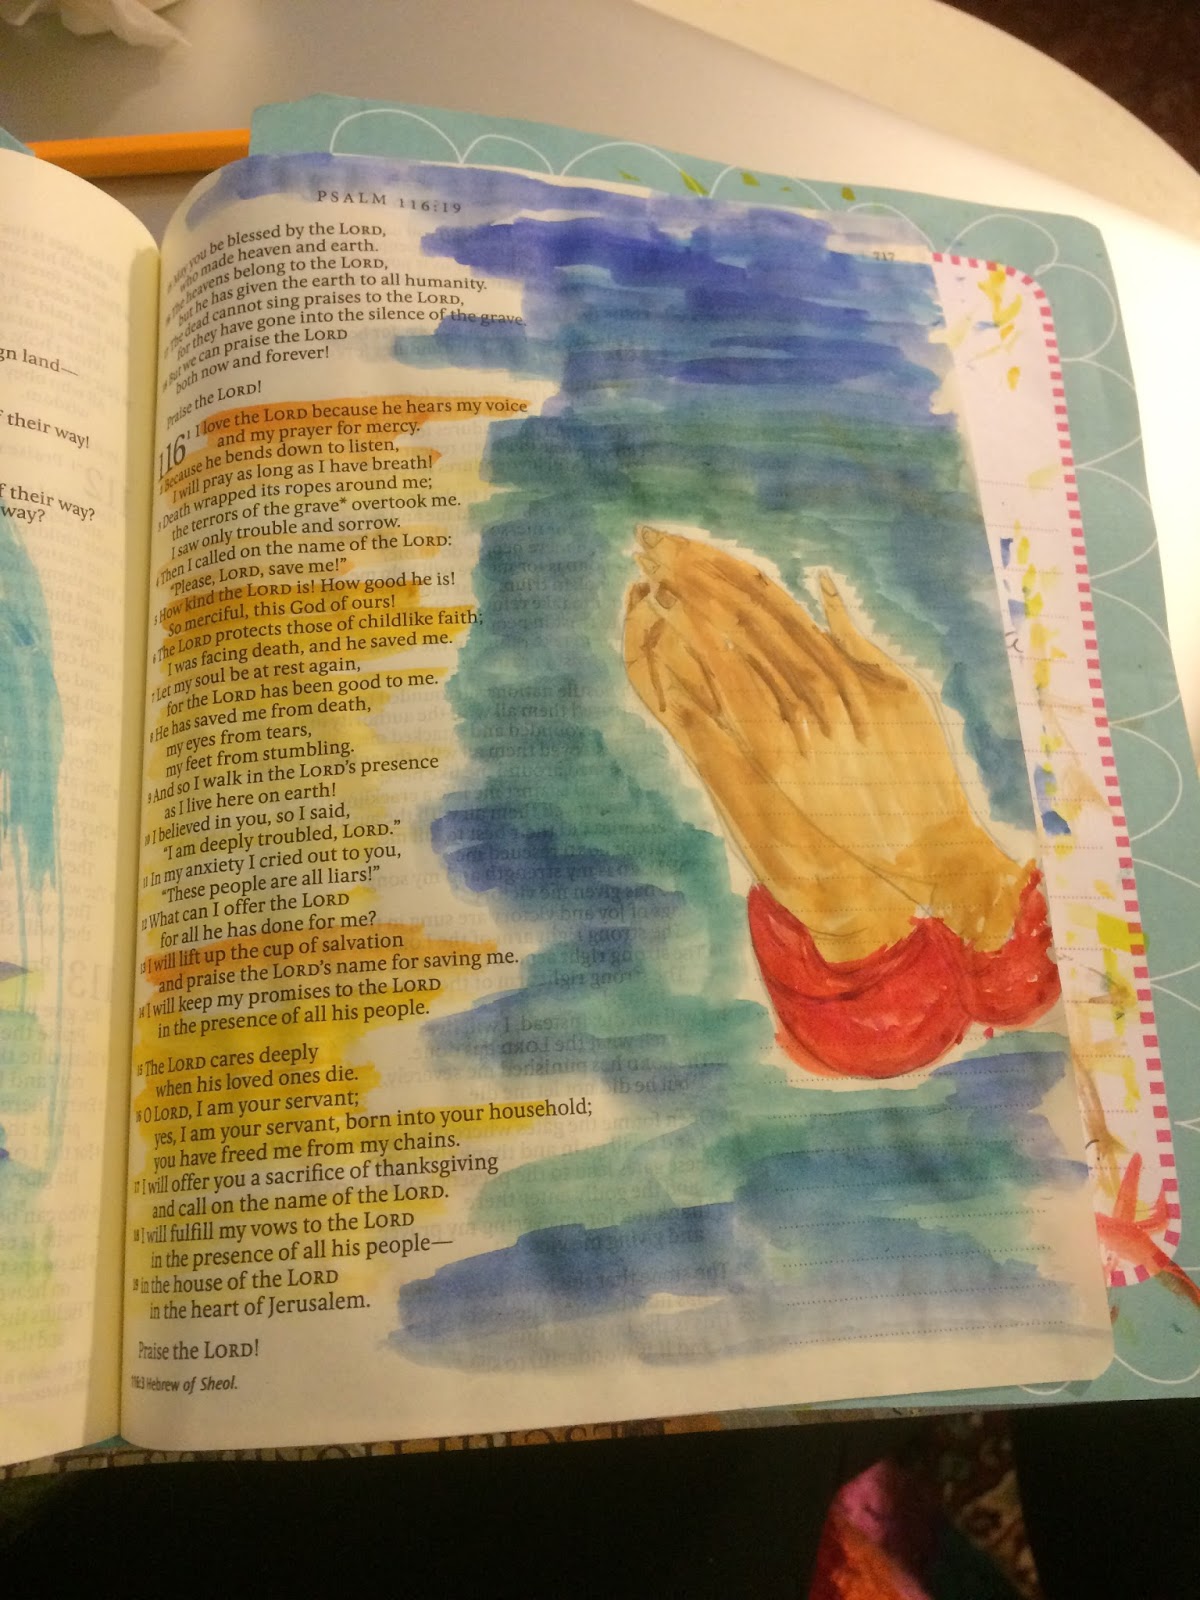 gn land—
f their way!
f their way?
way?
PSALM 116:19
717
15 May you be blessed by the LORD,
who made heaven and earth.
16 The heavens belong to the LORD,
but he has given the earth to all humanity.
17 The dead cannot sing praises to the LORD,
for they have gone into the silence of the grave.
18 But we can praise the LORD
both now and forever!
Praise the LORD!
116 1 I love the LORD because he hears my voice
and my prayer for mercy.
2 Because he bends down to listen,
I will pray as long as I have breath!
3 Death wrapped its ropes around me;
the terrors of the grave* overtook me.
I saw only trouble and sorrow.
4 Then I called on the name of the LORD:
“Please, LORD, save me!”
5 How kind the LORD is! How good he is!
So merciful, this God of ours!
6 The LORD protects those of childlike faith;
I was facing death, and he saved me.
7 Let my soul be at rest again,
for the LORD has been good to me.
8 He has saved me from death,
my eyes from tears,
my feet from stumbling.
9 And so I walk in the LORD’S presence
as I live here on earth!
10 I believed in you, so I said,
“I am deeply troubled, LORD.”
11 In my anxiety I cried out to you,
“These people are all liars!”
12 What can I offer the LORD
for all he has done for me?
13 I will lift up the cup of salvation
and praise the LORD’S name for saving me.
14 I will keep my promises to the LORD
in the presence of all his people.
15 The LORD cares deeply
when his loved ones die.
16 O LORD, I am your servant;
yes, I am your servant, born into your household;
you have freed me from my chains.
17 I will offer you a sacrifice of thanksgiving
and call on the name of the LORD.
18 I will fulfill my vows to the LORD
in the presence of all his people—
19 in the house of the LORD
in the heart of Jerusalem.
Praise the LORD!
116:3 Hebrew of Sheol.